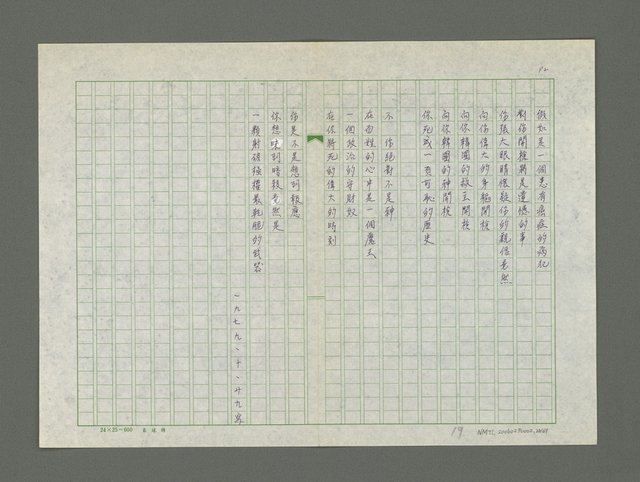 P2
假如是一個患有癌症的病犯
對你開槍將是遺憾的事
你張大眼睛懷疑你的親信竟然
向你偉大的身軀開槍
向你韓國的救主開槍
向你韓國的神開槍
你死成一頁可恥的歷史
不 你絕對不是神
在百姓的心中是一個魔王
一個政治的守財奴
在你將死的偉大的時刻
你是不是想到報應
你想 到時 竟然是
一顆射破強權最 的武器
一九七九、十、廿九 寫
24×25=600
19 NMTL